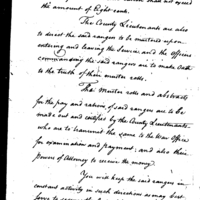 the amount of Eight cents.
The County Lieutenants are also
to direct the said rangers to be mustered upon
entering and leaving the Service and the officers
commanding the said rangers are to make Oath
to the truth of their muster rolls.
The Muster rolls and abstracts
for the pay and rations of said rangers are to be
made out and certified by the County Lieutenants
who are to transmit the same to the War Office
for examination and payment, and also their
powers of Attorney to receive the money.
You will keep the said rangers in
constant activity in such directions as may best
serve to